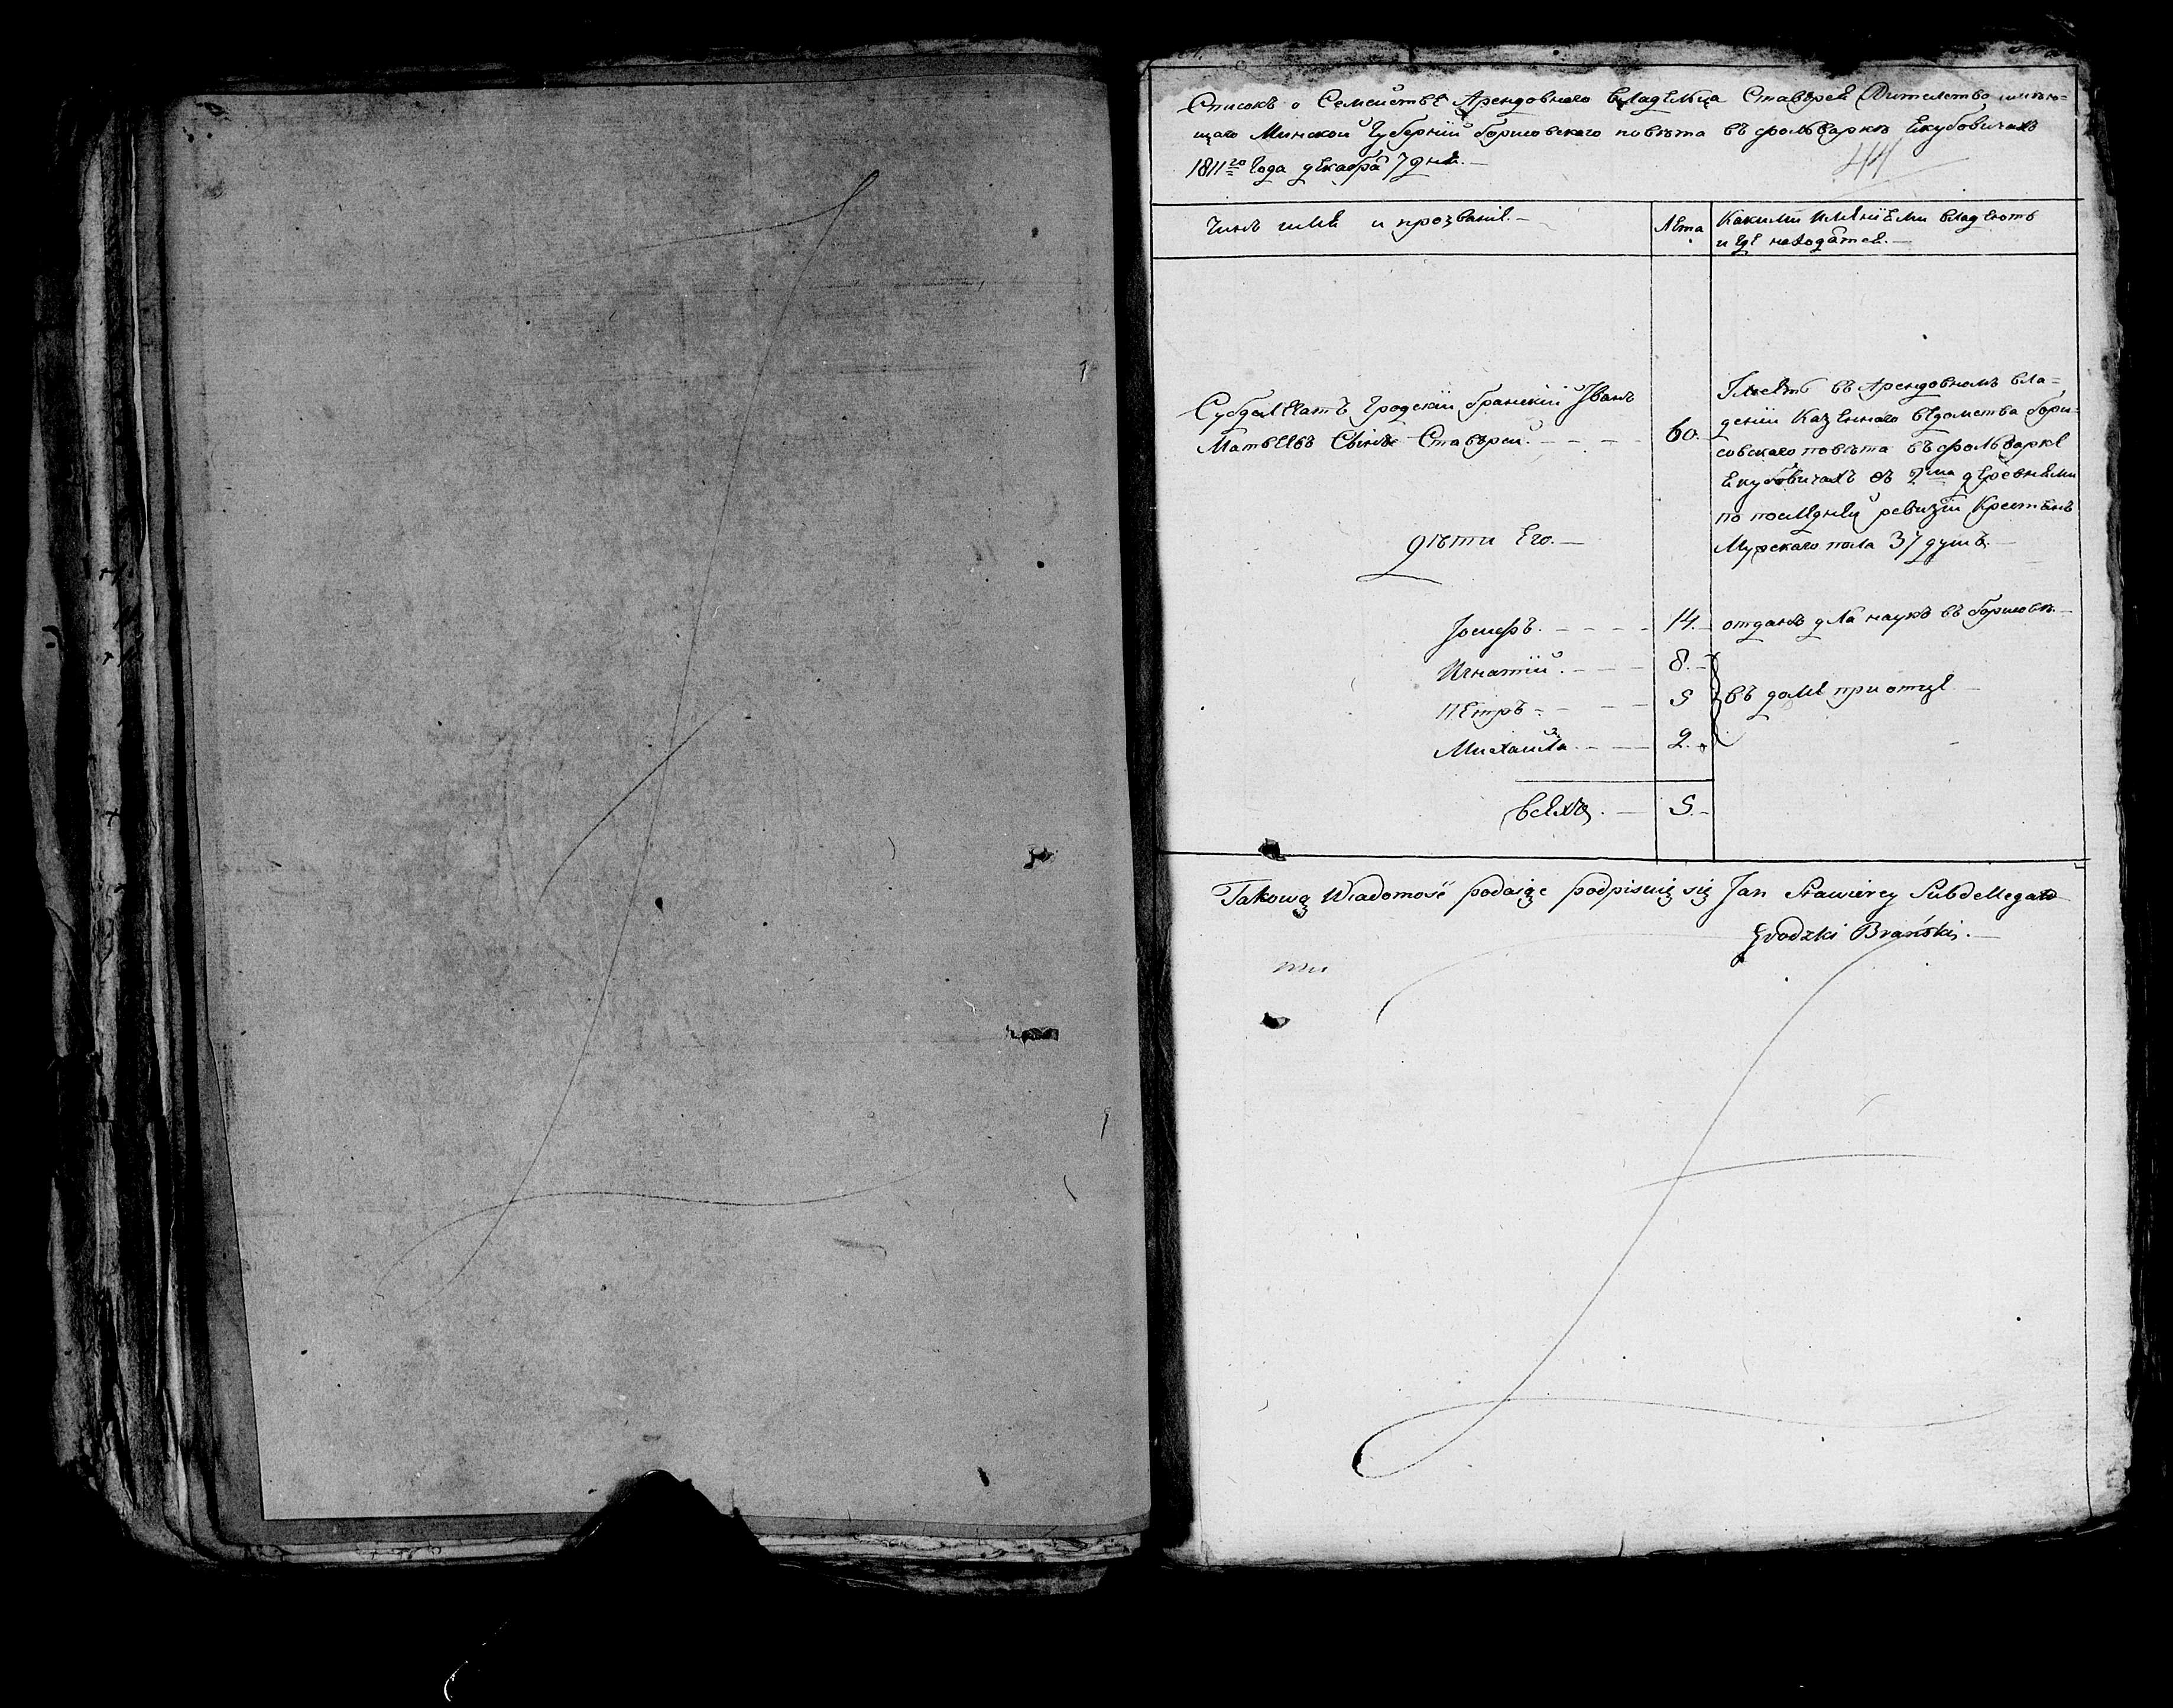 Списокъ о Семействе Арендовного владельца Ставѣрея Жителство имѣю=
щаго Минской Губернїи борисовского повѣта въ фольваркѣ Екубовичахъ
1811го Года декабра 7 дня.—
44
Чинъ имя и прозваниe.—
Лета
Какими имянїеми владеютъ
и где находятся.—
Субделегатъ Гродскїй бранскїй Иванъ
Матвеевъ Сынъ Ставѣрей.
60.
Имеетъ въ Арендовномъ вла=
денїи Казенного ведомства бори=
совского повѣта въ фольварке
Екубовичахъ съ 2ма деревнями
по последней ревизїи Крестянъ
Мужского пола 37 душъ.—
дѣти Его.—
Iосифъ.
14.
отданъ для наукъ въ борисовѣ.—
Игнатїй.
8.
Петръ
5
въ доме при отце.—
Михайла.
2.
Всехъ.
5.
Takową Wiadomość podaiąc podpisuię się Jan Stawierey Subdellegat
Grodzki Brański.